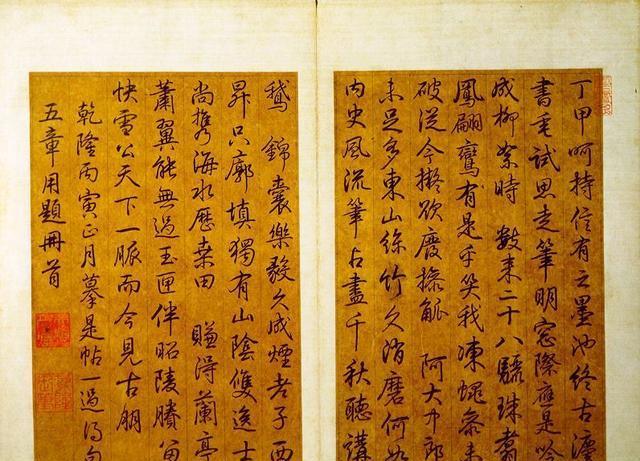 丁甲呵持信有之墨池終古
書毫試思走筆明窗際應是吟
成柳絮時 數来二十八驪珠翥
鳳翩鸞有是乎笑我凍蠅參未
破從今擬欲廢操觚 阿大中郎
未足多東山絲竹久消磨何如
内史風流筆占盡千秋聽講
鵝 錦囊樂毅久成煙老子西
昇只廓填獨有山陰雙逸士
尚携海水歷桑田 賺得蘭亭
蕭翼能無過玉匣伴昭陵賸留
快雪公天下一脈而今見古朋
乾隆丙寅正月摹是帖一過得句
五章用題冊首